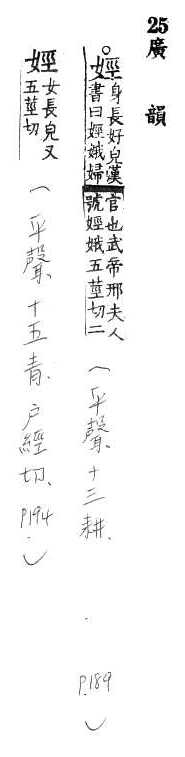 25廣　韻
。娙身長好皃漢書曰娙娥婦官也武帝邢夫人號娙娥五莖切二（平聲、十三耕.　P.189）
娙女長皃又五莖切（平聲、十五青. 戶經切、P194.）